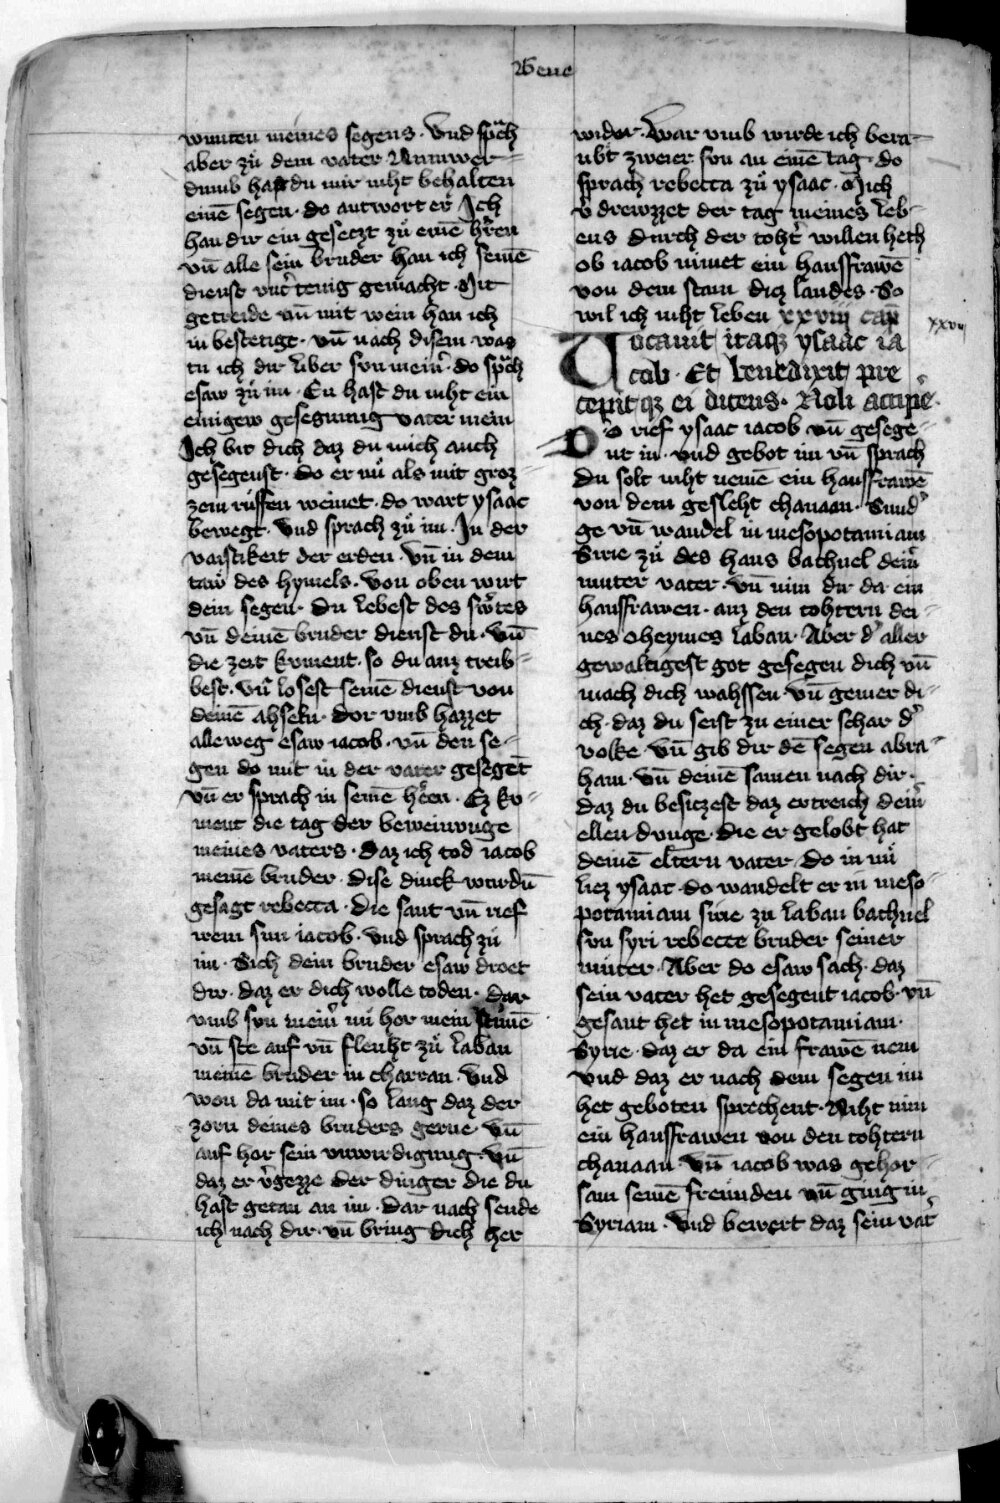 Gene
wunten meines segens · Vnd spͣch
aber zů dem vater Nvmwer⸗
dumb hastdu mir niht behalten
einē segen · do antwort er Ich
han dir ein gesetzt zů einē h̓ren
vn̄ alle sein bruder han ich seinē
dienst vnt̓tenig gemacht · Mit
getreide vn̄ mit wein han ich
in bestetigt · vn̄ nach disem was
tu ich dir lieber svn mein̓ · do spͣch
esaw zů im · En hast du niht ein
einigew gesegnung vater mein
Ich bit dich daz du mich auch
gesegenst · do er nů als mit groz⸗
zem růffen weinet · do wart ysaac
bewegt · Vnd sprach zů im · In der
vaistikeit der erden · vn̄ in dem
taw des hymels · von oben wirt
dein segen · Du lebest des sw̓tes
vn̄ deinē bruder dienst du · vn̄
die zeit kvment · so du auz treib⸗
best · vn̄ losest seinē dienst von
deinē ahseln · Dor vmb hazzet
alleweg esaw iacob · vn̄ den se⸗
gen do mit in der vater gesegēt
vn̄ er sprach in seinē h̓cen · Ez kv⸗
ment die tag der beweinvnge
meines vaters · daz ich tod iacob
meinē bruder · dise dinck wurdū
gesagt rebecca · die sant vn̄ rief
irem sun iacob · vnd sprach zů
im · Sich dein bruder esaw droet
dir · daz er dich wolle toden · dar
vmb svn mein̓ nů hor mein stimē
vn̄ ste auf vn̄ fleuht zů laban
meinē bruder in charran · Vnd
won da mit im · so lang daz der
zorn deines bruders gerue · vn̄
auf hor sein vnwirdigung · vn̄
daz er v̓gezze der dinger die du
hast getan an im · Dar nach sende
ich nach dir · vn̄ bring dich her
wider · War vmb wirde ich bera⸗
ubt zweier svn an einē tag · do
sprach rebecca zů ysaac · Mich
v̓drewzzet der tag meines leb⸗
ens durch der toht̓ willen heth
ob iacob nimet ein hausfrawē
von dem stam diez landes · So
wil ich niht leben xxviij cap̄
xxviij
Uocauit itaqꝫ ysaac ia
cob · Et benedixit pre
cepitqꝫ ei dicens · Noli accipe ·
Do rief ysaac iacob vn̄ gesege⸗
nt in · vnd gebot im vn̄ sprach
du solt niht nemē ein hausfrawē
von dem gesleht chanaan · Sund̓
ge vn̄ wandel in mesopotamiam
Sirie zů des haus bathuel dein̓
muter vater · vn̄ nim dir da ein
hausfrawen · auz den tohtern dei⸗
nes oheymes laban · Aber d̓ aller
gewaltigest got gesegen dich vn̄
mach dich wahssen · vn̄ gemer di⸗
ch · daz du seist zu einer schar d̓
volke · vn̄ gib dir dē segen abra⸗
ham · vn̄ deinē samen nach dir ·
daz du besitzest daz ertreich dein̓
ellendvnge · die er gelobt hat
deinē eltern vater · Do in nů
liez ysaac · do wandelt er in meso⸗
potamiam sirie zu laban bathuel
svn syri rebecce bruder seiner
muter · Aber do esaw sach · daz
sein vater het gesegent iacob · vn̄
gesant het in mesopotamiam ·
Syrie · daz er da ein frawē nem
vnd daz er nach dem segen im
het geboten sprechent · Niht nim
ein hausfrawen von den tohtern
chanaan · vn̄ iacob was gehor⸗
sam seinē freunden vn̄ ging in
Syriam · Vnd bewert daz sein vat̓